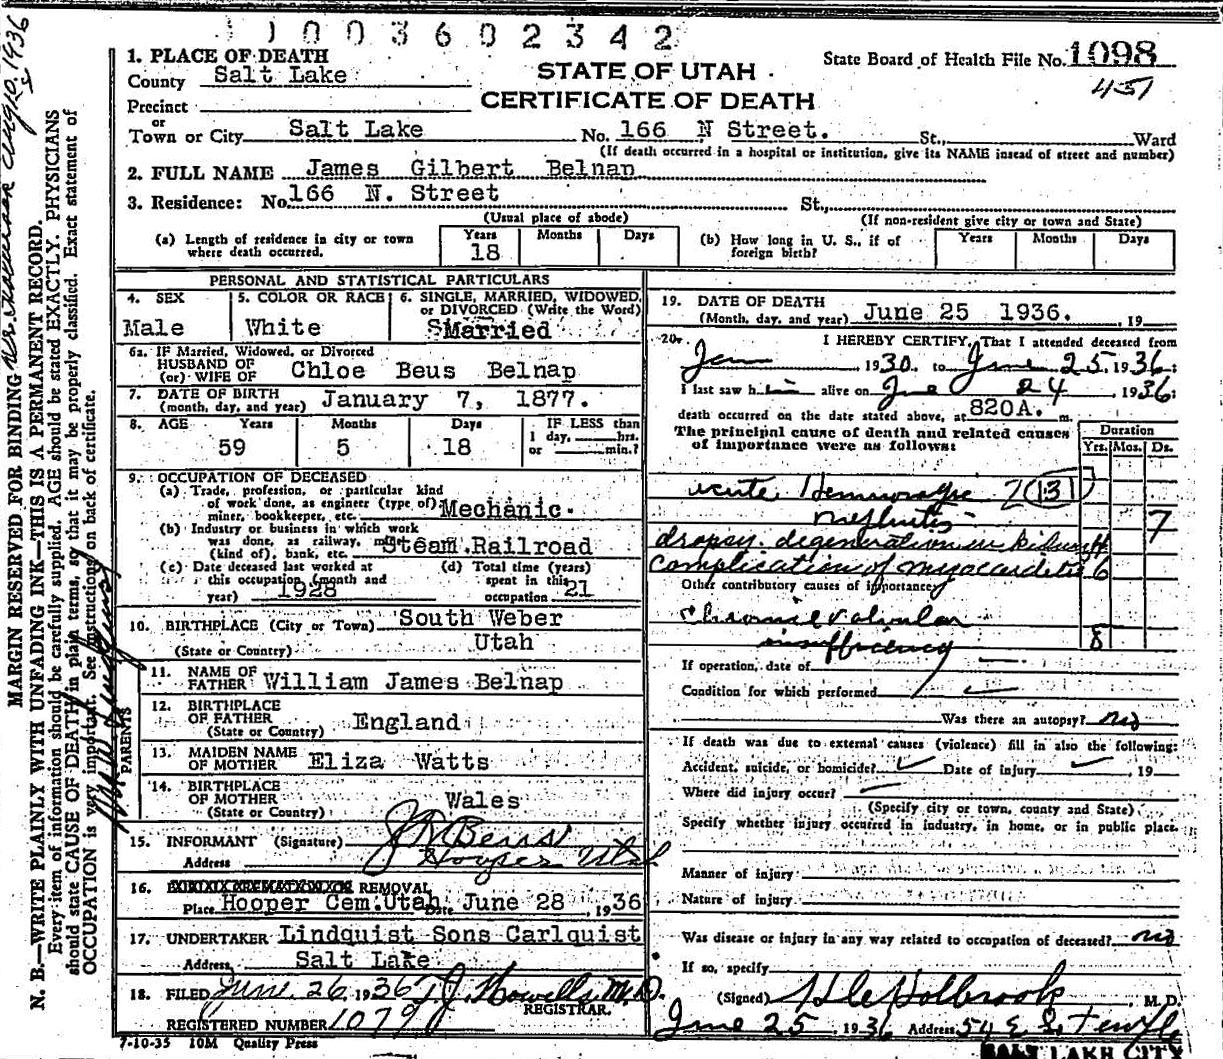 1 1 0 0 3 6 0 2 3 4 2
1. PLACE OF DEATH
County Salt Lake
STATE OF UTAH
State Board of Health File No. 1098
451
Precinct
CERTIFICATE OF DEATH
or
Town or City Salt Lake No. 166 N Street. St., Ward
(If death occurred in a hospital or institution, give its NAME insead of street and number)
2. FULL NAME James Gilbert Belnap
3. Residence: No. 166 N. Street St.,
(Usual place of abode) (If non-resident give city or town and State)
(a) Length of residence in city or town where death occurred. Years 18 Months Days
(b) How long in U. S., if of foreign birth? Years Months Days
PERSONAL AND STATISTICAL PARTICULARS
4. SEX Male
5. COLOR OR RACE White
6. SINGLE, MARRIED, WIDOWED, or DIVORCED (Write the Word) Married
6a. IF Married, Widowed, or Divorced
HUSBAND OF
(or) WIFE OF Chloe Beus Belnap
7. DATE OF BIRTH
(month, day, and year) January 7, 1877.
8. AGE Years 59 Months 5 Days 18 IF LESS than 1 day, hrs. or min.?
9. OCCUPATION OF DECEASED
(a) Trade, profession, or particular kind
of work done, as engineer (type of)
miner, bookkeeper, etc. Mechanic.
(b) Industry or business in which work
was done, as railway, mine
(kind of), bank, etc. Steam Railroad
(c) Date deceased last worked at
this occupation (month and
year) 1928
(d) Total time (years)
spent in this
occupation 21
10. BIRTHPLACE (City or Town) South Weber
(State or Country) Utah
PARENTS
11. NAME OF
FATHER William James Belnap
12. BIRTHPLACE
OF FATHER England
(State or Country)
13. MAIDEN NAME
OF MOTHER Eliza Watts
14. BIRTHPLACE
OF MOTHER Wales
(State or Country)
15. INFORMANT (Signature)
Address Hooper Utah
16. REMOVAL
Place Hooper Cem. Utah Date June 28, 1936
17. UNDERTAKER Lindquist Sons Carlquist
Address Salt Lake
18. FILED June 26 1936 T.J. Howells M.D.
REGISTRAR.
REGISTERED NUMBER 1079
7-10-35 10M Quality Press
19. DATE OF DEATH
(Month, day, and year) June 25 1936. , 19
20. I HEREBY CERTIFY, That I attended deceased from
Jan 1930, to June 25, 1936;
I last saw him alive on June 24, 1936;
death occurred on the date stated above, at 820A. m.
The principal cause of death and related causes
of importance were as follows:
Duration
Yrs. Mos. Ds.
acute Hemorrhagic 131
nephritis 7
dropsy. degeneration in kidney 4
complication of myocarditis 6
Other contributory causes of importance
Chronic valvular
insufficiency 8
If operation, date of
Condition for which performed
Was there an autopsy? no
If death was due to external causes (violence) fill in also the following:
Accident, suicide, or homicide? Date of injury , 19
Where did injury occur?
(Specify city or town, county and State)
Specify whether injury occurred in industry, in home, or in public place.
Manner of injury
Nature of injury
Was disease or injury in any way related to occupation of deceased? no
If so, specify
(Signed) Holbrook, M. D.
June 25, 1936 Address 54 E. S. Temple
SALT LAKE CITY
MARGIN RESERVED FOR BINDING
N. B.—WRITE PLAINLY WITH UNFADING INK—THIS IS A PERMANENT RECORD.
Every item of information should be carefully supplied. AGE should be stated EXACTLY. PHYSICIANS
should state CAUSE OF DEATH in plain terms, so that it may be properly classified. Exact statement of
OCCUPATION is very important. See instructions on back of certificate.
Aug 10, 1936